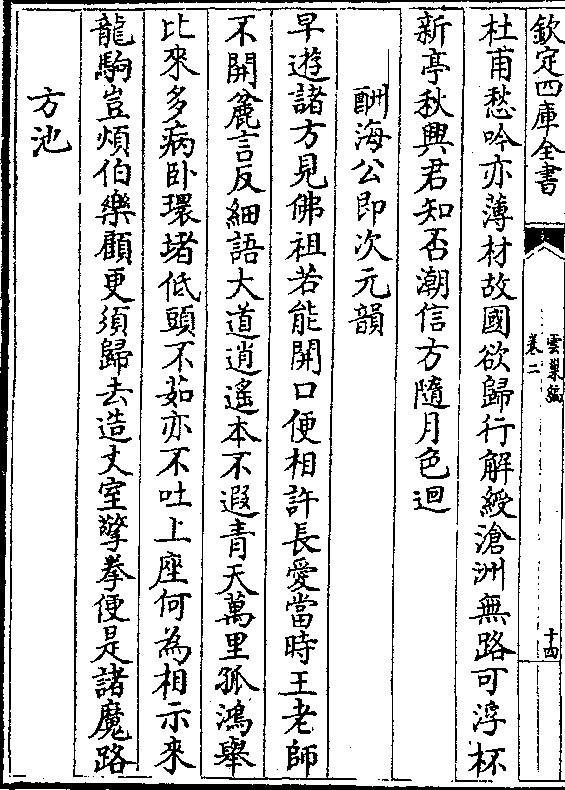 欽定四庫全書
雲巢編
卷二
十四
杜甫愁吟亦薄材故國欲歸行解綬滄洲無路可浮杯
新亭秋興君知否潮信方隨月色迴
酬海公即次元韻
早遊諸方見佛祖若能開口便相許長愛當時王老師
不開麄言反細語大道逍遙本不遐青天萬里孤鴻舉
比來多病卧環堵低頭不茹亦不吐上座何為相示來
龍駒豈煩伯樂顧更須歸去造丈室擎拳便是諸魔路
方池